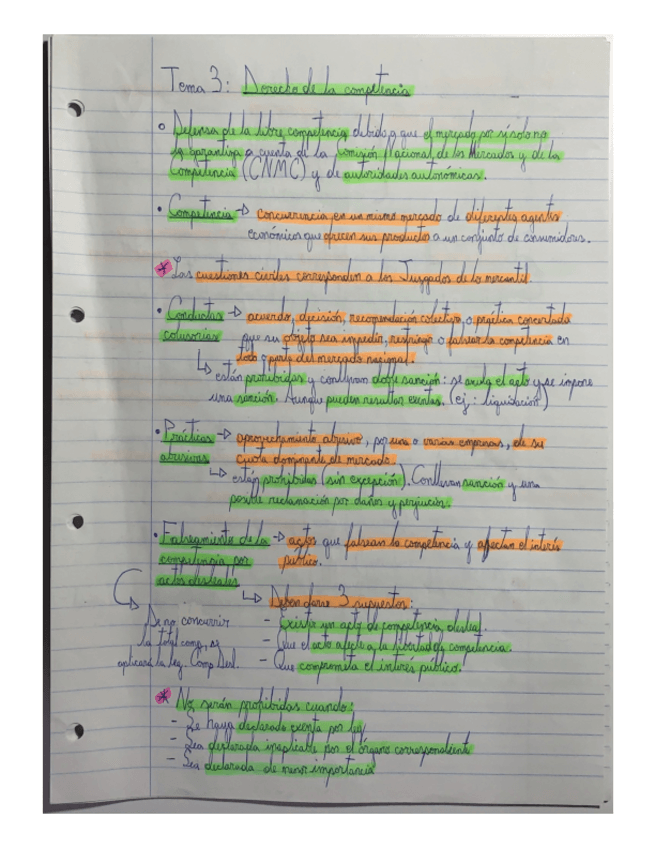 Tema 3: Derecho de la competencia
° Defensa de la libre competencia debido a que el mercado por sí solo no
la garantiza a cuenta de la Comisión Nacional de los Mercados y de la
Competencia (CNMC) y de autoridades autonómicas.
• Competencia → concurrencia en un mismo mercado de diferentes agentes
económicos que ofrecen sus productos a un conjunto de consumidores.
* Las cuestiones civiles corresponden a los Juzgados de lo mercantil.
• Conductas → acuerdo, decisión, recomendación colectiva, o práctica concertada
colusorias que su objeto sea impedir, restringir o falsear la competencia en
todo o parte del mercado nacional.
↳ están prohibidas y conllevan doble sanción: se anula el acto y se impone
una sanción. Aunque pueden resultar exentas. (ej.: liquidación)
• Prácticas → aprovechamiento abusivo, por una o varias empresas, de su
abusivas cuota dominante de mercado.
↳ están prohibidas (sin excepción). Conllevan sanción y una
posible reclamación por daños y perjuicios.
• Falseamiento de la → actos que falsean la competencia y afectan el interés
competencia por público.
actos desleales
↳ Deben darse 3 supuestos:
- Existir un acto de competencia desleal.
- Que el acto afecte a la libertad de competencia.
- Que comprometa el interés público.
De no concurrir
la total comp, se
aplicará la ley. Comp Desl.
* No serán prohibidas cuando:
- Se haya declarado exenta por ley
- Sea declarada inaplicable por el órgano correspondiente
- Sea declarada de menor importancia